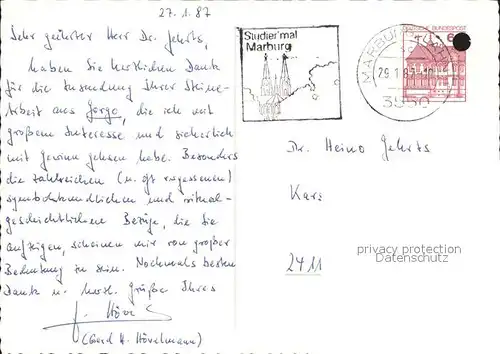 27.1.87
Sehr geehrter Herr Dr. Gehrts,
haben Sie herzlichen Dank
für die Zusendung Ihrer Steine-
Arbeit aus Gorgo, die ich mit
großem Interesse und sicherlich
mit Gewinn gelesen habe. Besonders
die zahlreichen (u. oft vergessenen)
symbolkundlichen und ritual-
geschichtlichen Bezüge, die Sie
aufzeigen, scheinen mir von großer
Bedeutung zu sein. Nochmals besten
Dank u. herzl. Grüße Ihres
(Gerd H. Hövelmann)
Studier mal
Marburg
MARBURG
29.1.87
3550
BUNDESPOST
Dr. Heino Gehrts
2411
privacy protection
Datenschutz